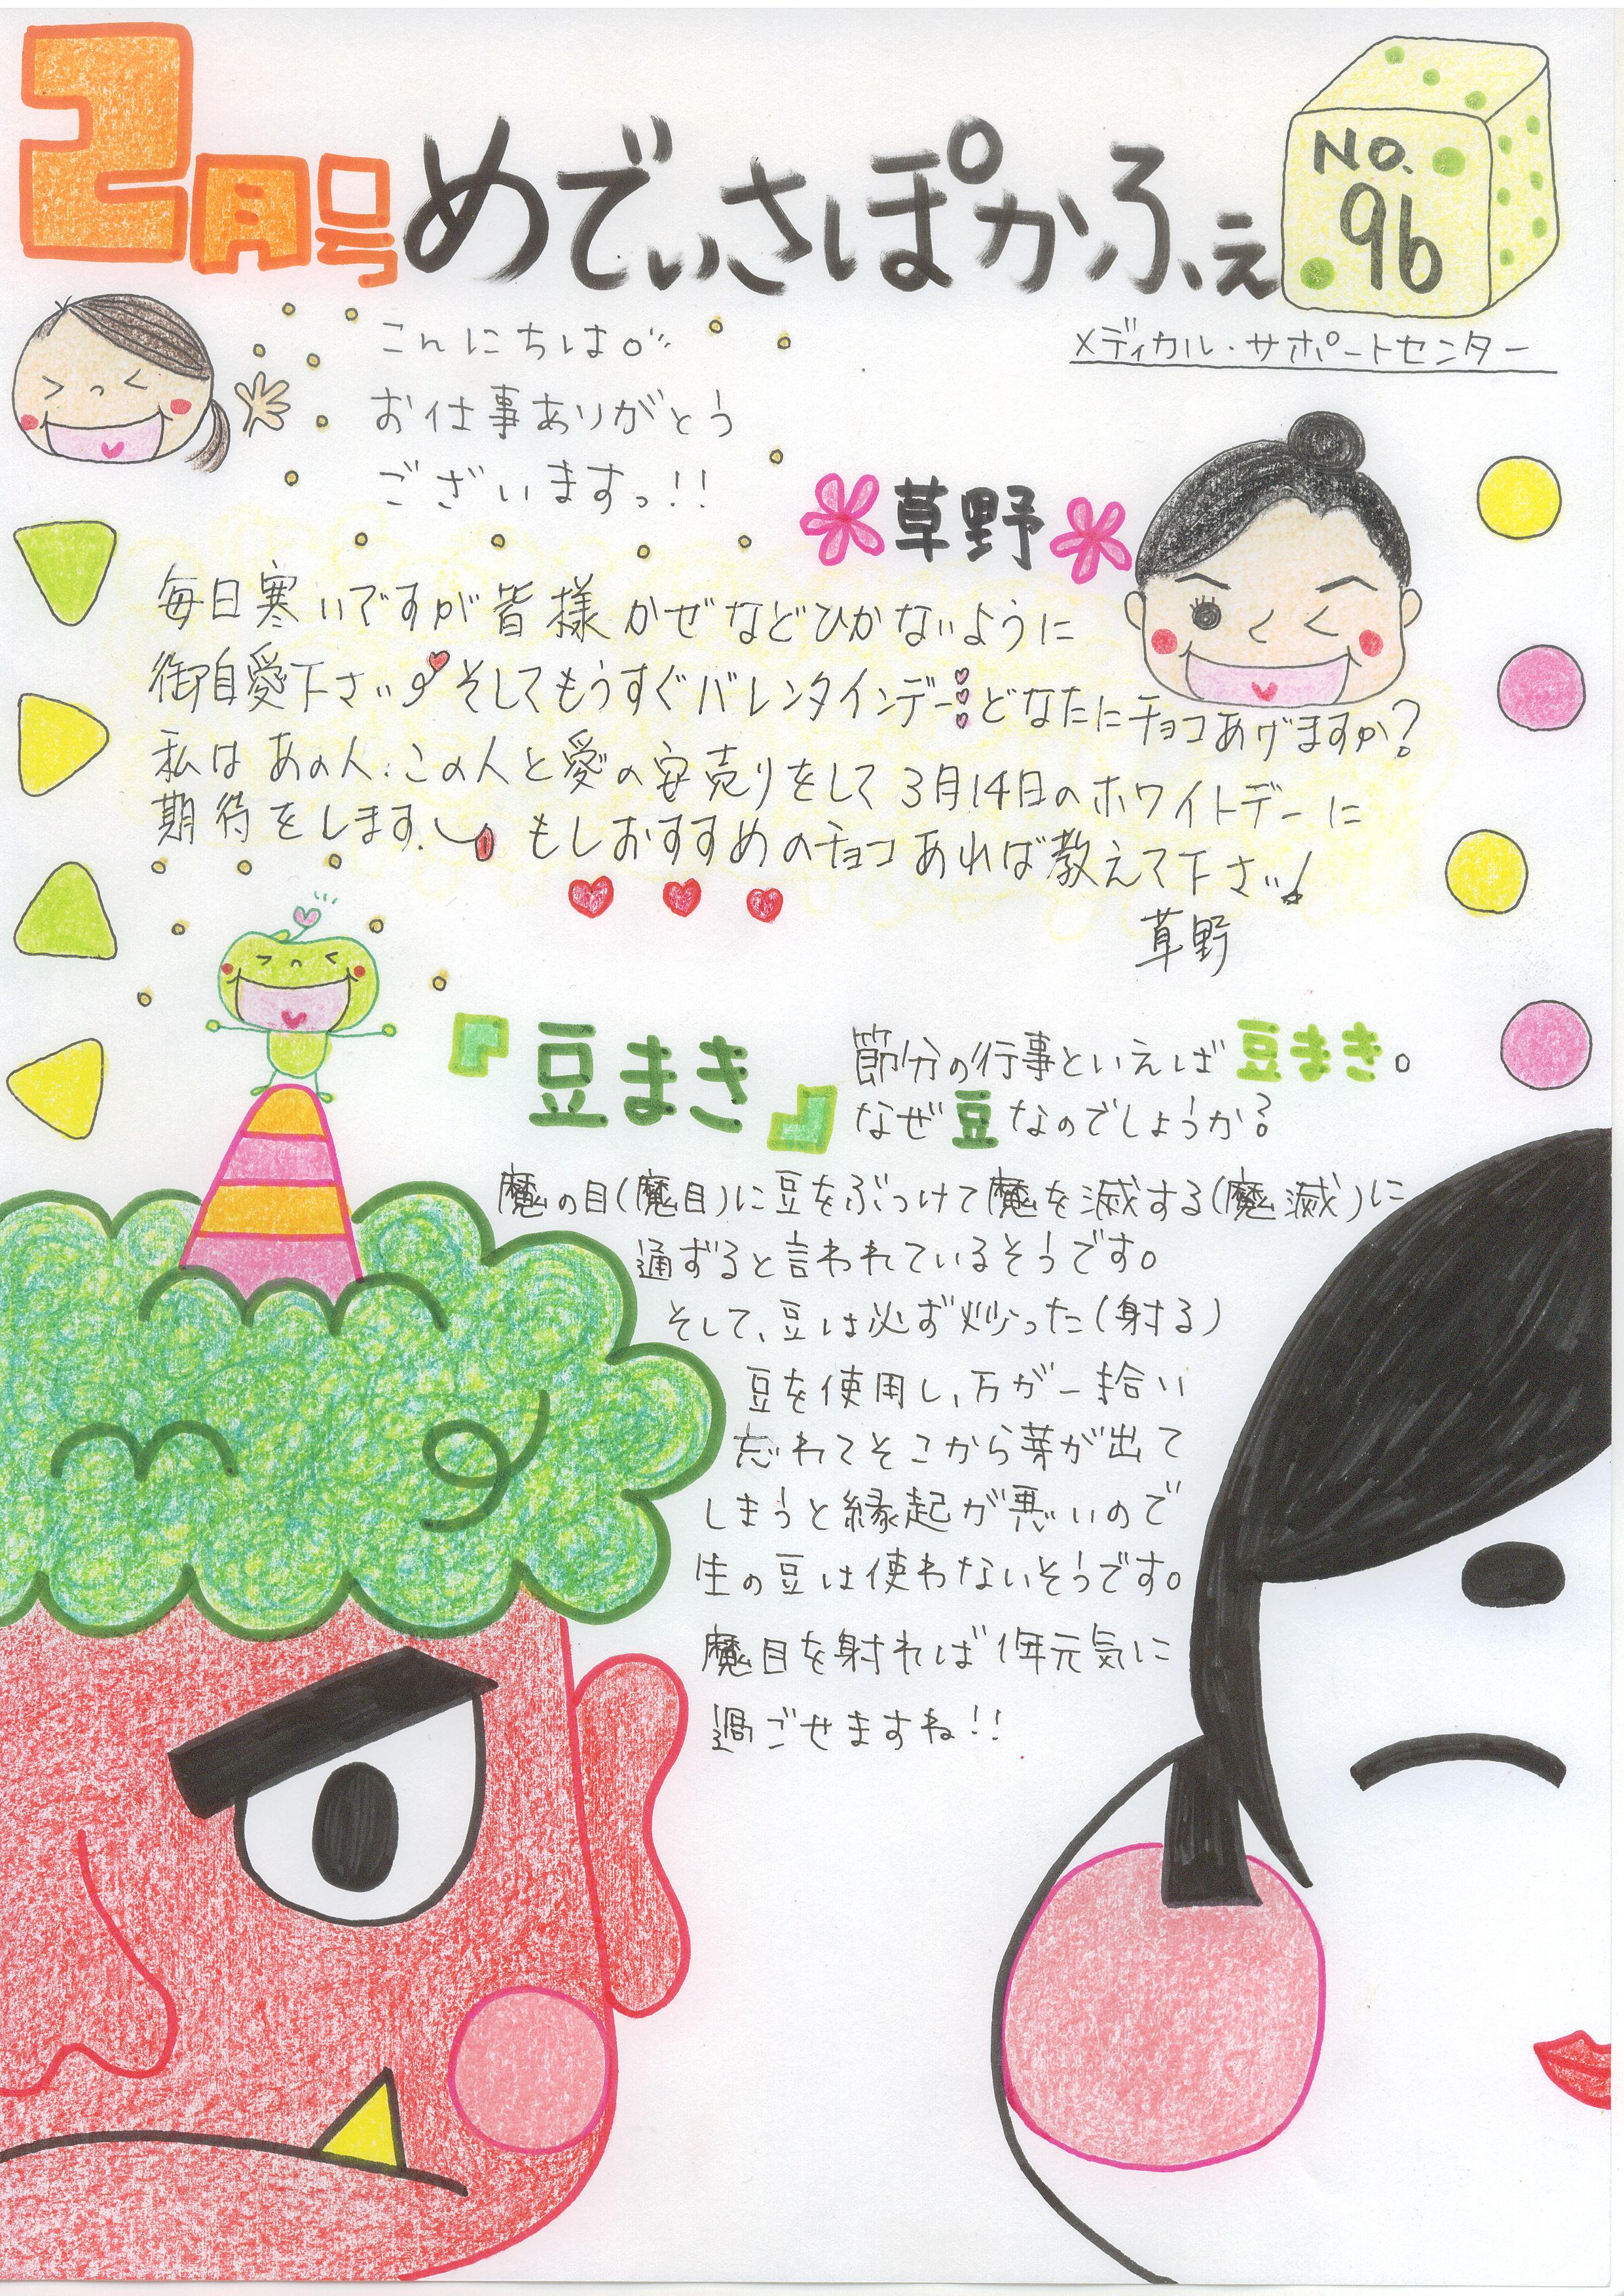 2月号 めでぃさぽかふぇ No.96
メディカル・サポートセンター
こんにちは。
お仕事ありがとう
ございますっ!!
草野
毎日寒いですが皆様かぜなどひかないように
御自愛下さい そしてもうすぐバレンタインデー どなたにチョコあげますか?
私はあの人、この人と愛の安売りをして3月14日のホワイトデーに
期待をします。もしおすすめのチョコあれば教えて下さい!
草野
『豆まき』
節分の行事といえば豆まき。
なぜ豆なのでしょうか?
魔の目(魔目)に豆をぶつけて魔を滅する(魔滅)に
通ずると言われているそうです。
そして、豆は必ず炒った(射る)
豆を使用し、万が一拾い
忘れてそこから芽が出て
しまうと縁起が悪いので
生の豆は使わないそうです。
魔目を射れば1年元気に
過ごせますね!!